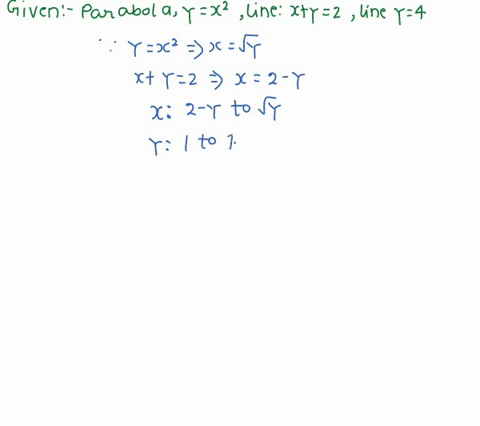 Given:- Parabola, y=x², line: x+y=2, line y=4
∵ y=x² ⇒ x=√y
x+y=2 ⇒ x=2-y
x: 2-y to √y
y: 1 to